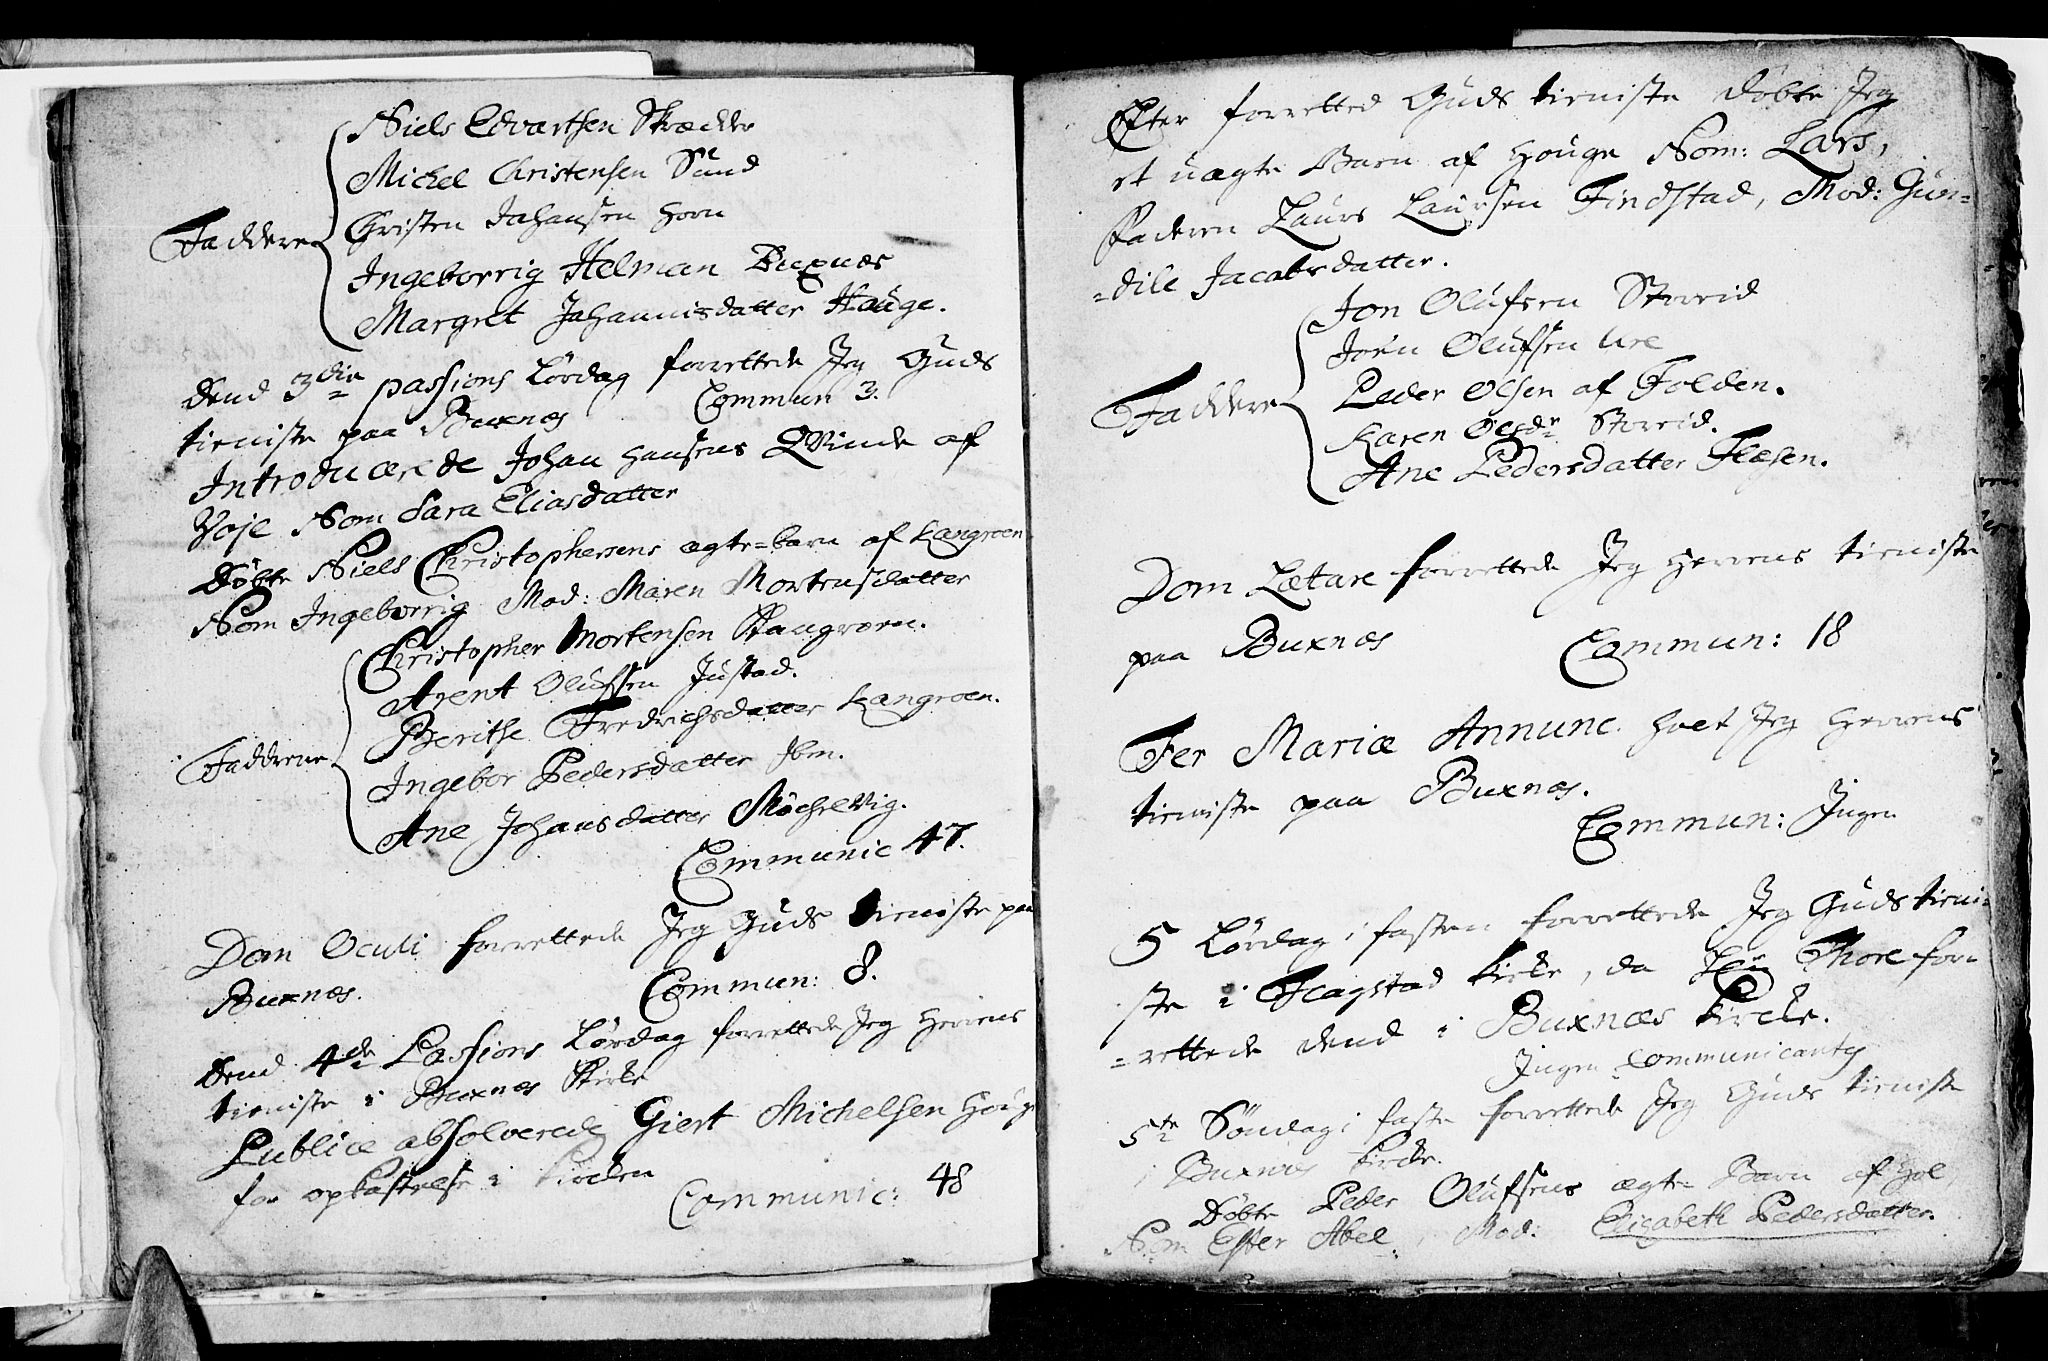 Niels Edvartsen Skrædder
Michel Christensen Sund
Christen Johansen Horn
Faddere
Ingeborrig Helman Buxnæs
Margret Johannisdatter Hauge.
Dend 3die passions Lørdag forrettede Jeg Guds
tieniste paa Buxnæs Commun 3.
Introducerede Johan Hansens Qvinde af
Voje Nom Sara Eliasdatter
Døbte Niels Christophersens ægte-barn af Kangroen
Nom Ingeborrig Mod: Maren Mortensdatter
Christopher Mortensen
Arent Olufsen Justad.
Berithe Fredrichsdatter Kangroen.
Fadderne
Ingebor Pedersdatter ibm.
Ane Johansdatter Møchelvig.
Communic 47.
Dom Oculi forrettede Jeg Guds tieniste paa
Buxnæs. Commun: 8.
Dend 4de Passions Lørdag forrettede Jeg Herrens
tieniste i Buxnæs Kirke
Publice absolverede Giert Michelsen
for opkastelse i Kirken
Communic: 48
Efter forretted Guds tieniste døbte Jeg
et uægte Barn af Houge Nom: Lars,
Faderen Laurs Laursen Findstad, Mod: Gun-
-dile Jacobsdatter.
Jon Olufsen Storeid
Joen Olufsen Ure
Faddere
Peder Olsen af Folden.
Karen Olsdr Storeid.
Ane Pedersdatter Flæsen.
Dom Lætare forrettede Jeg Herrens tieniste
paa Buxnæs Commun: 18
Fer Mariæ Annunc. holt Jeg Herrens
tieniste paa Buxnæs.
Commun: Ingen
5 Lørdag i fasten forrettede Jeg Guds tieni-
ste i Flagstad Kirke, da Thore for-
-rettede dend i Buxnæs Kirke.
Ingen Communicantes
5te Søndag i faste forrettede Jeg Guds tieniste
i Buxnæs Kirke.
Døbte Peder Olufsens ægte Barn af Hol
Nom Ester Abel, Mod: Elisabeth Pedersdatter.